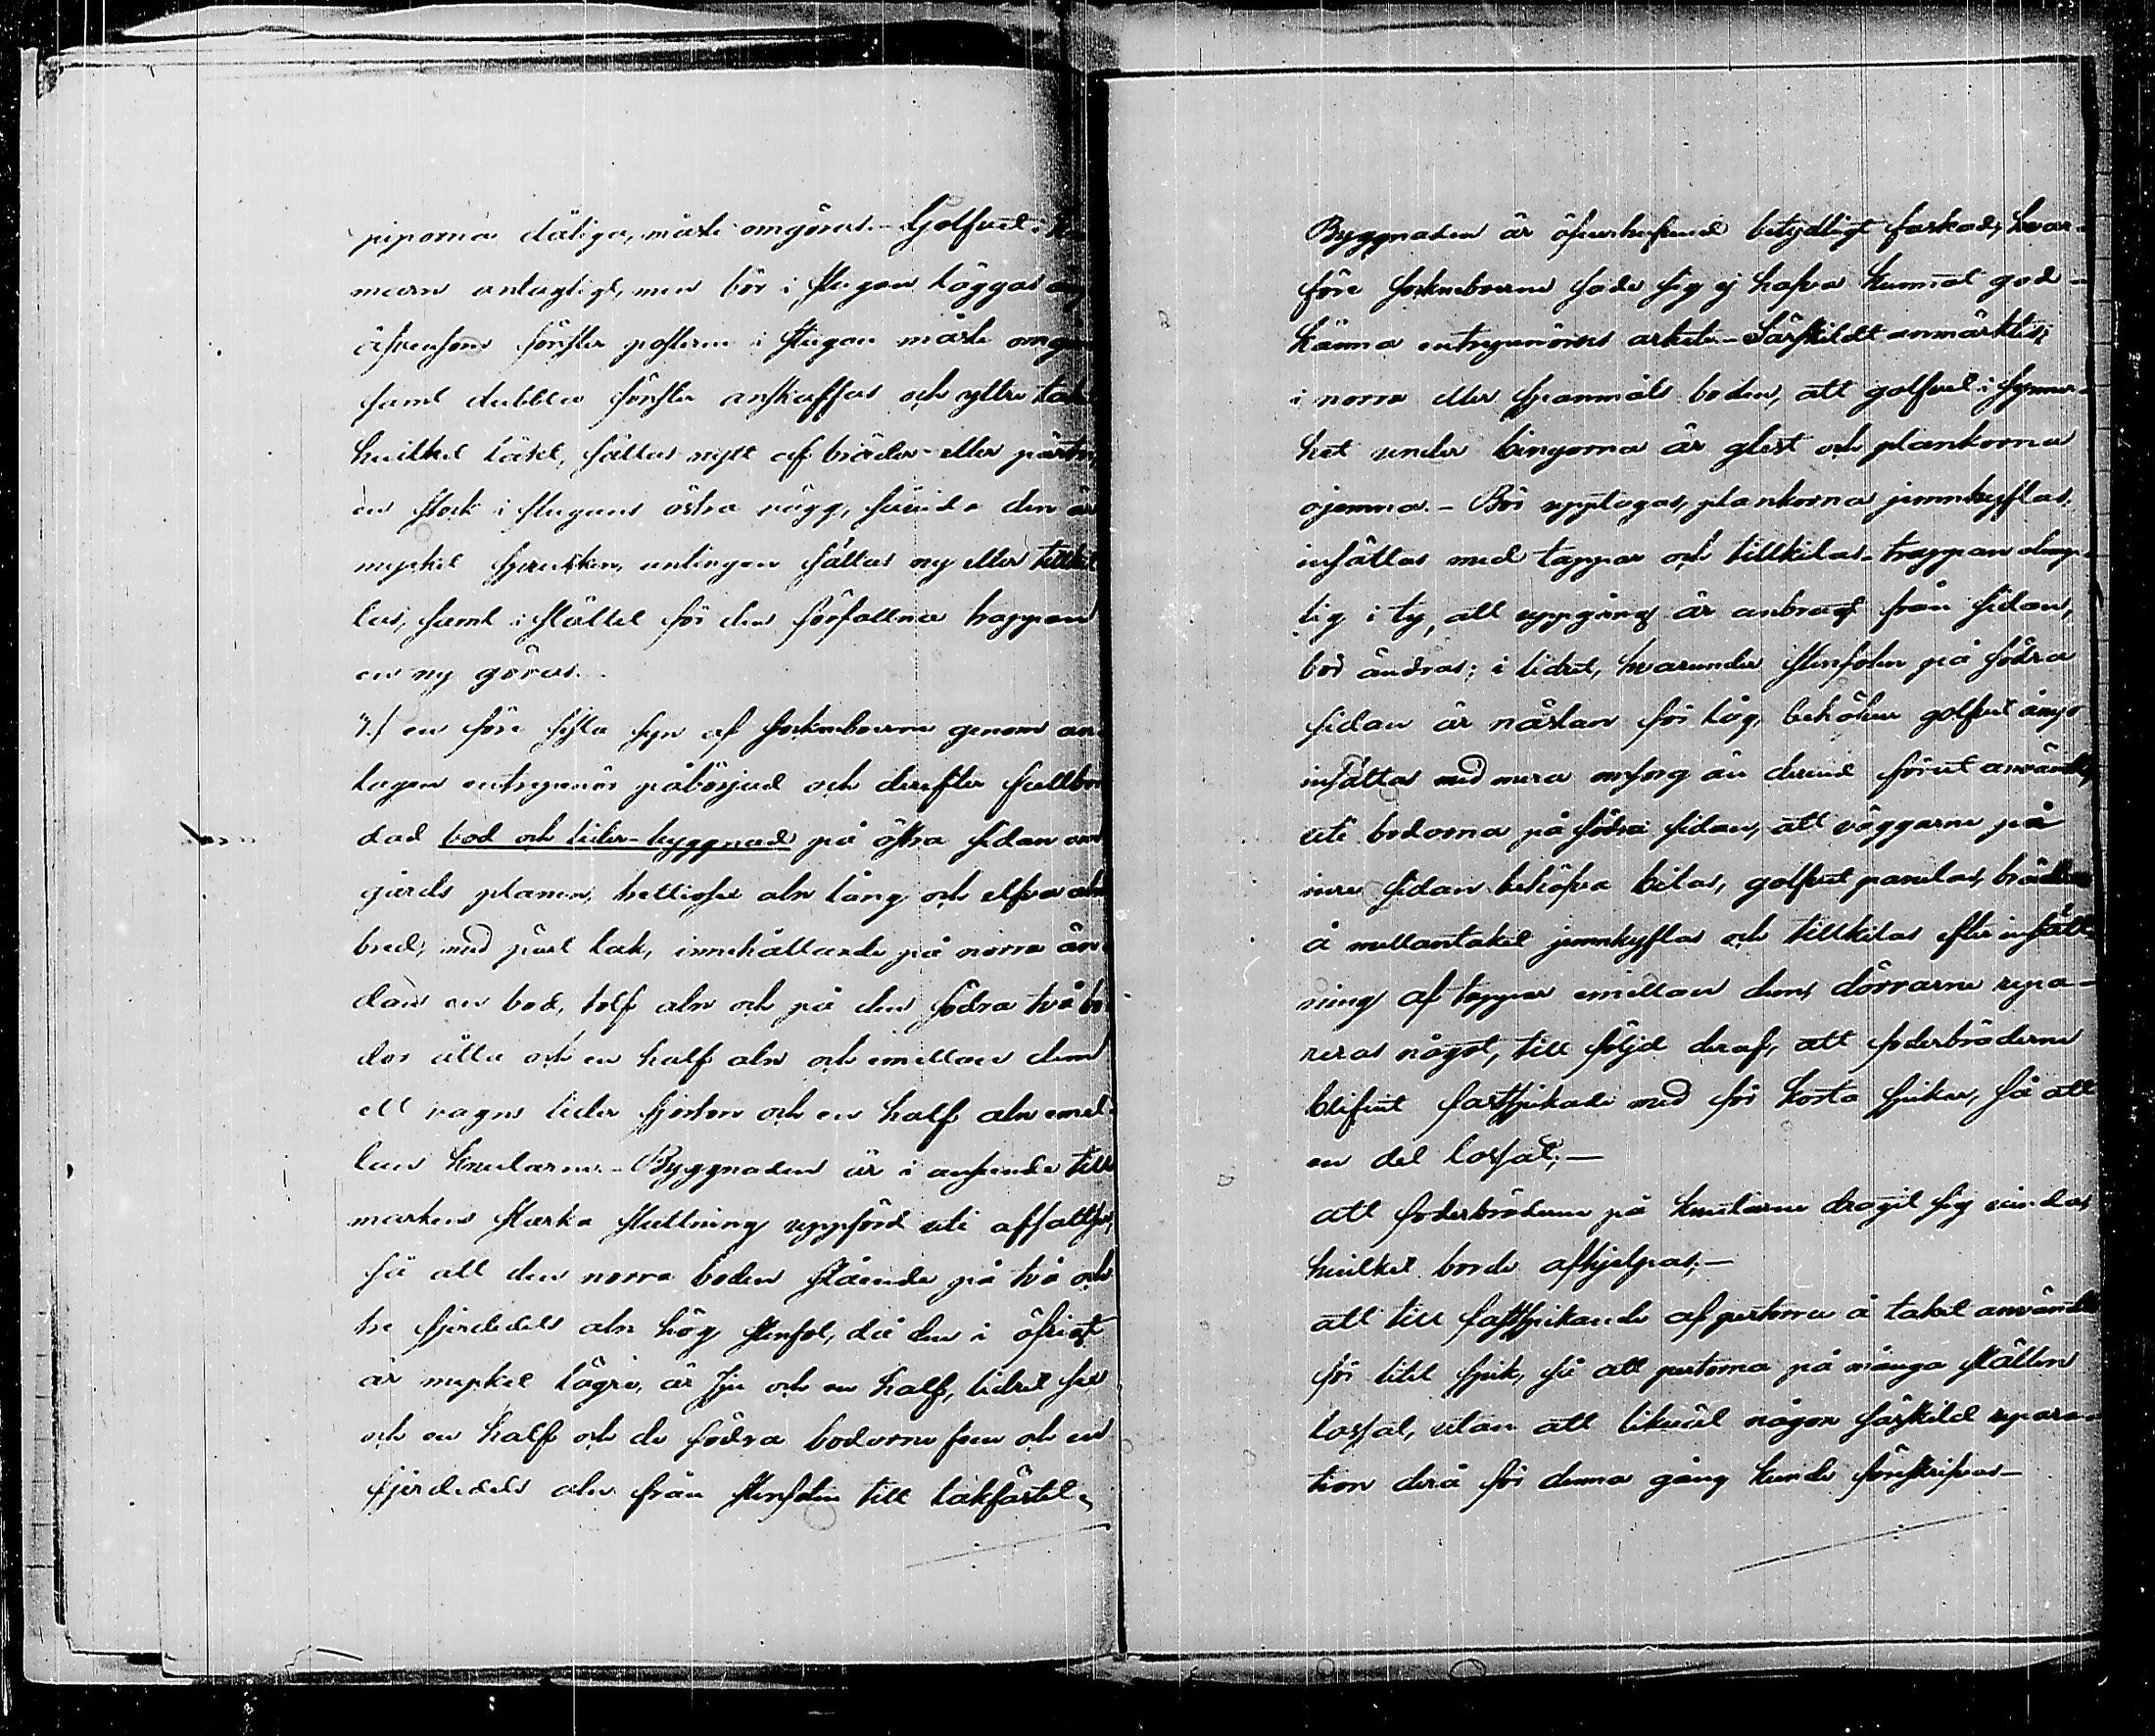 piporna dåliga, måste omgöras. - Golfvet i
maren antagligt, men bör i stugan läggas
äfvensom fönster posterne i stugan måste
samt dubbla fönster anskaffas och yttre tak
hvilket läkt, sättas nytt af bräder eller pärtor,
en stock i stugans östra vägg, såvida den är
mycket sprucken, antingen sättas ny eller
las, samt i stället för den förfallna trappan
en ny göras.
7./ en före sista syn af sockneboerne genom an-
tagen entreprenör påbörjad och derefter fullbor
dad bod och lider-byggnad på östra sidan om
gårds planen, trettiosex aln lång och elfva aln
bred, med pärt tak, innehållande på norra än
dan en bod, tolf aln och på den södra två bo
dor åtta och en half aln och emellan dem
ett vagns lider fjorton och en half aln emel-
lan knutarne. - Byggnaden är i anseende till
markens starka sluttning uppförd uti affattser,
så att den norra boden stående på två och
tre fjerdedels aln hög stenfot, då den i öfrigt
är mycket lägre, är sju och en half, lidret sex
och en half och de södra bodorne fem och en
fjerdedels aln från stenfoten till takfästet,
Byggnaden är öfverhufvud betydligt faskad, hvar-
före socknebo­erne sade sig ej hafva kunnat god-
känna entreprenörens arbete. - Särskildt anmärktes;
i norra eller spanmåls boden, att golfvet i synner-
het under bingorna är glest och plankorna
ojemna. - Bör upptagas, plankorna jemnhyflas,
insättas med tappar och tillkilas. - trappan olämp-
lig i ty, att uppgång är anbragt från sidan,
bör ändras; i lidret, hvarunder stenfoten på södra
sidan är nästan för låg, behöfver golfvet ånyo
insättas med mera omsorg än dervid förut användts,
uti bodorna på södra sidan, att väggarne på
inre sidan behöfva bilas, golfvet panelas, bräderne
å mellantaket jemnhyflas och tillkilas efter insätt-
ning af tappar emellan dem, dörrarne repa-
reras något, till följd deraf, att foderbräderne
blifvit fastspikade med för korta spikar, så att
en del lossat; -
att foderbräderne på knutarne dragit sig vinda,
hvilket borde afhjelpas; -
att till fastspikande af pertorna å taket användts
för litet spik, så att pertorna på många ställen
lossat, utan att likväl någon särskild repara-
tion derå för denna gång kunde föreskrifvas -